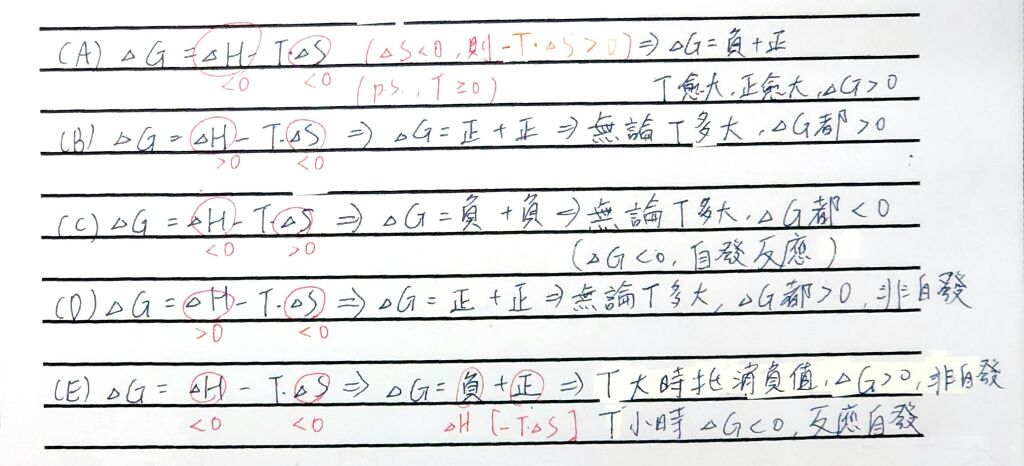 (A) △G = △H - T·△S (△S<0, 則 -T·△S>0) ⇒ △G = 負 + 正
<0 <0 (p.s., T≥0) T愈大, 正愈大, △G>0
(B) △G = △H - T·△S ⇒ △G = 正 + 正 ⇒ 無論T多大, △G都>0
>0 <0
(C) △G = △H - T·△S ⇒ △G = 負 + 負 ⇒ 無論T多大, △G都<0
<0 >0 (△G<0, 自發反應)
(D) △G = △H - T·△S ⇒ △G = 正 + 正 ⇒ 無論T多大, △G都>0, 非自發
>0 <0
(E) △G = △H - T·△S ⇒ △G = 負 + 正 ⇒ T大時抵消負值, △G>0, 非自發
<0 <0 △H [-T·△S] T小時 △G<0, 反應自發